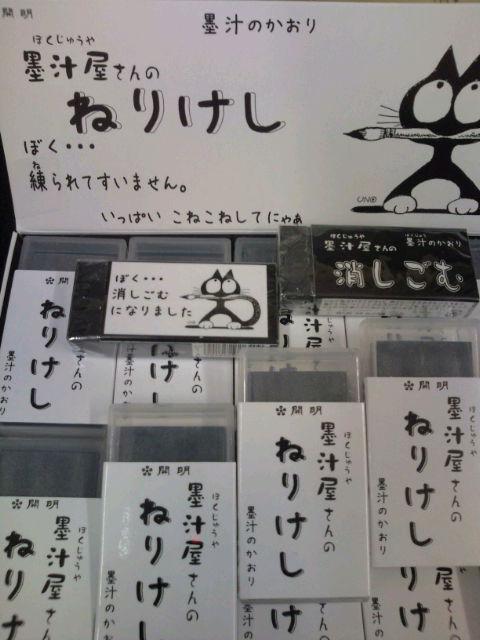 開明
墨汁のかおり
ぼくじゅうや
墨汁屋さんの
ねりけし
ぼく・・・
ね
練られてすいません。
いっぱい こねこねしてにゃぁ
UNO
ぼくじゅうや
墨汁屋さんの
ぼくじゅう
墨汁のかおり
消しごむ
ぼく・・・
消しごむ
になりました
さんの
ねりけし
墨汁のかおり
開明
ぼくじゅうや
墨汁屋さんの
ねりけし
墨汁のかおり
開明
ぼくじゅうや
墨汁屋さんの
ねりけし
墨汁のかおり
開明
ぼくじゅうや
墨汁屋さんの
ねりけし
墨汁のかおり
開明
ぼくじゅうや
墨汁屋さんの
ねり
墨汁の